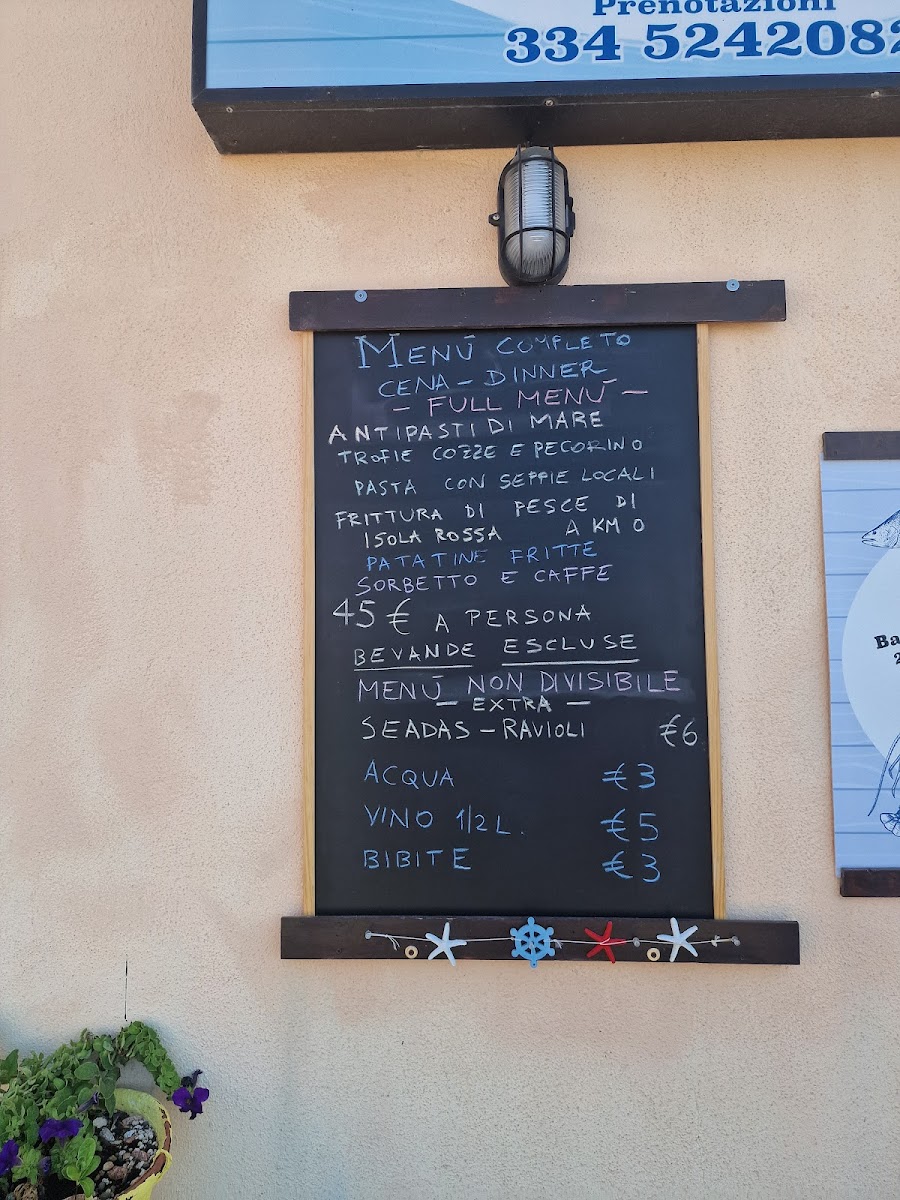 Prenotazioni
334 5242082
MENÚ COMPLETO
CENA - DINNER
- FULL MENÚ -
ANTIPASTI DI MARE
TROFIE COZZE E PECORINO
PASTA CON SEPPIE LOCALI
FRITTURA DI PESCE DI
ISOLA ROSSA A KM 0
PATATINE FRITTE
SORBETTO E CAFFE
45 € A PERSONA
BEVANDE ESCLUSE
MENÚ NON DIVISIBILE
- EXTRA -
SEADAS - RAVIOLI €6
ACQUA €3
VINO 1/2 L. €5
BIBITE €3
Ba